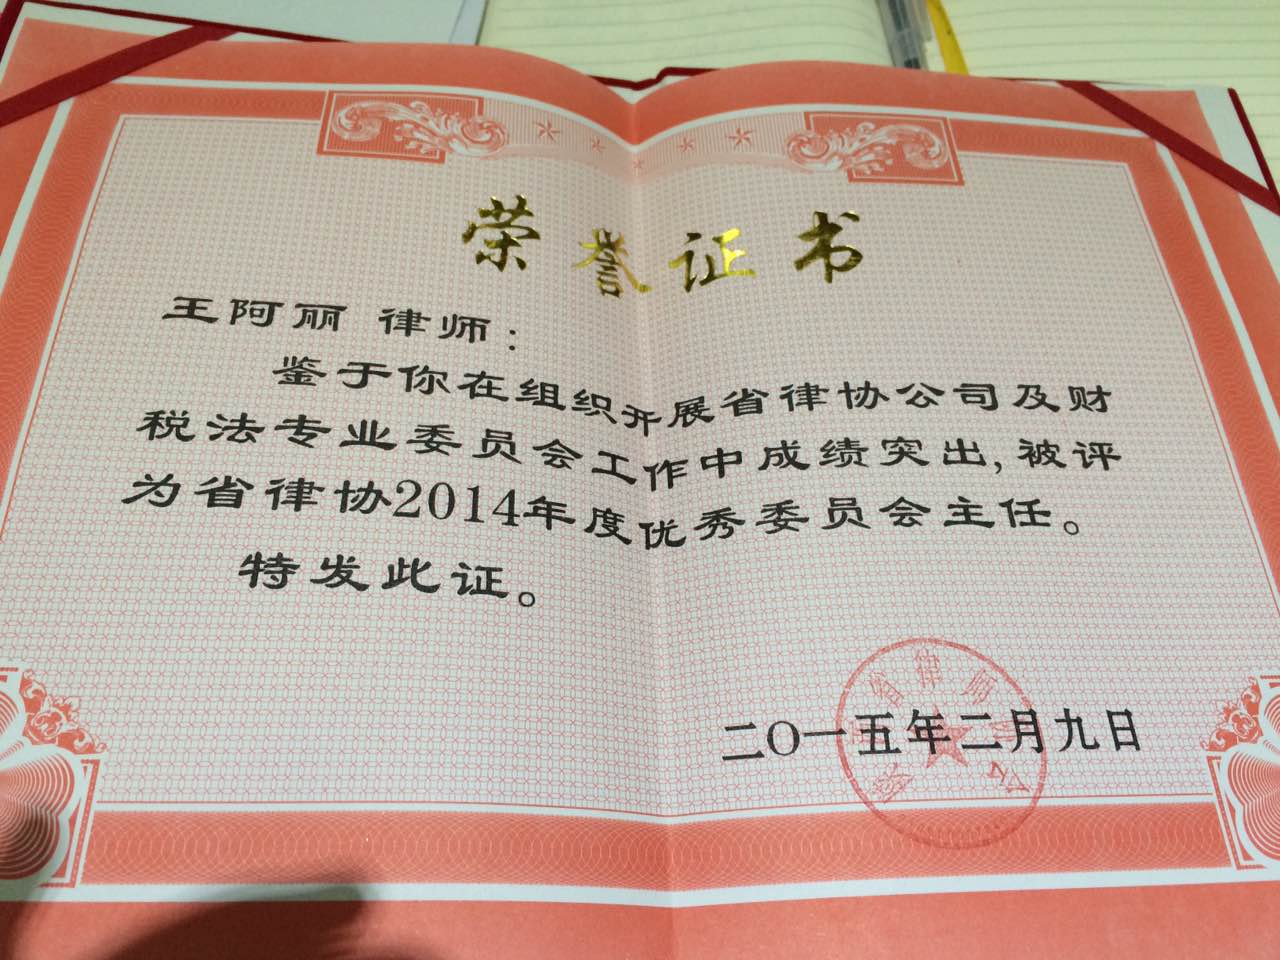 荣誉证书
王阿丽 律师：
鉴于你在组织开展省律协公司及财
税法专业委员会工作中成绩突出,被评
为省律协2014年度优秀委员会主任。
特发此证。
二〇一五年二月九日
省律师